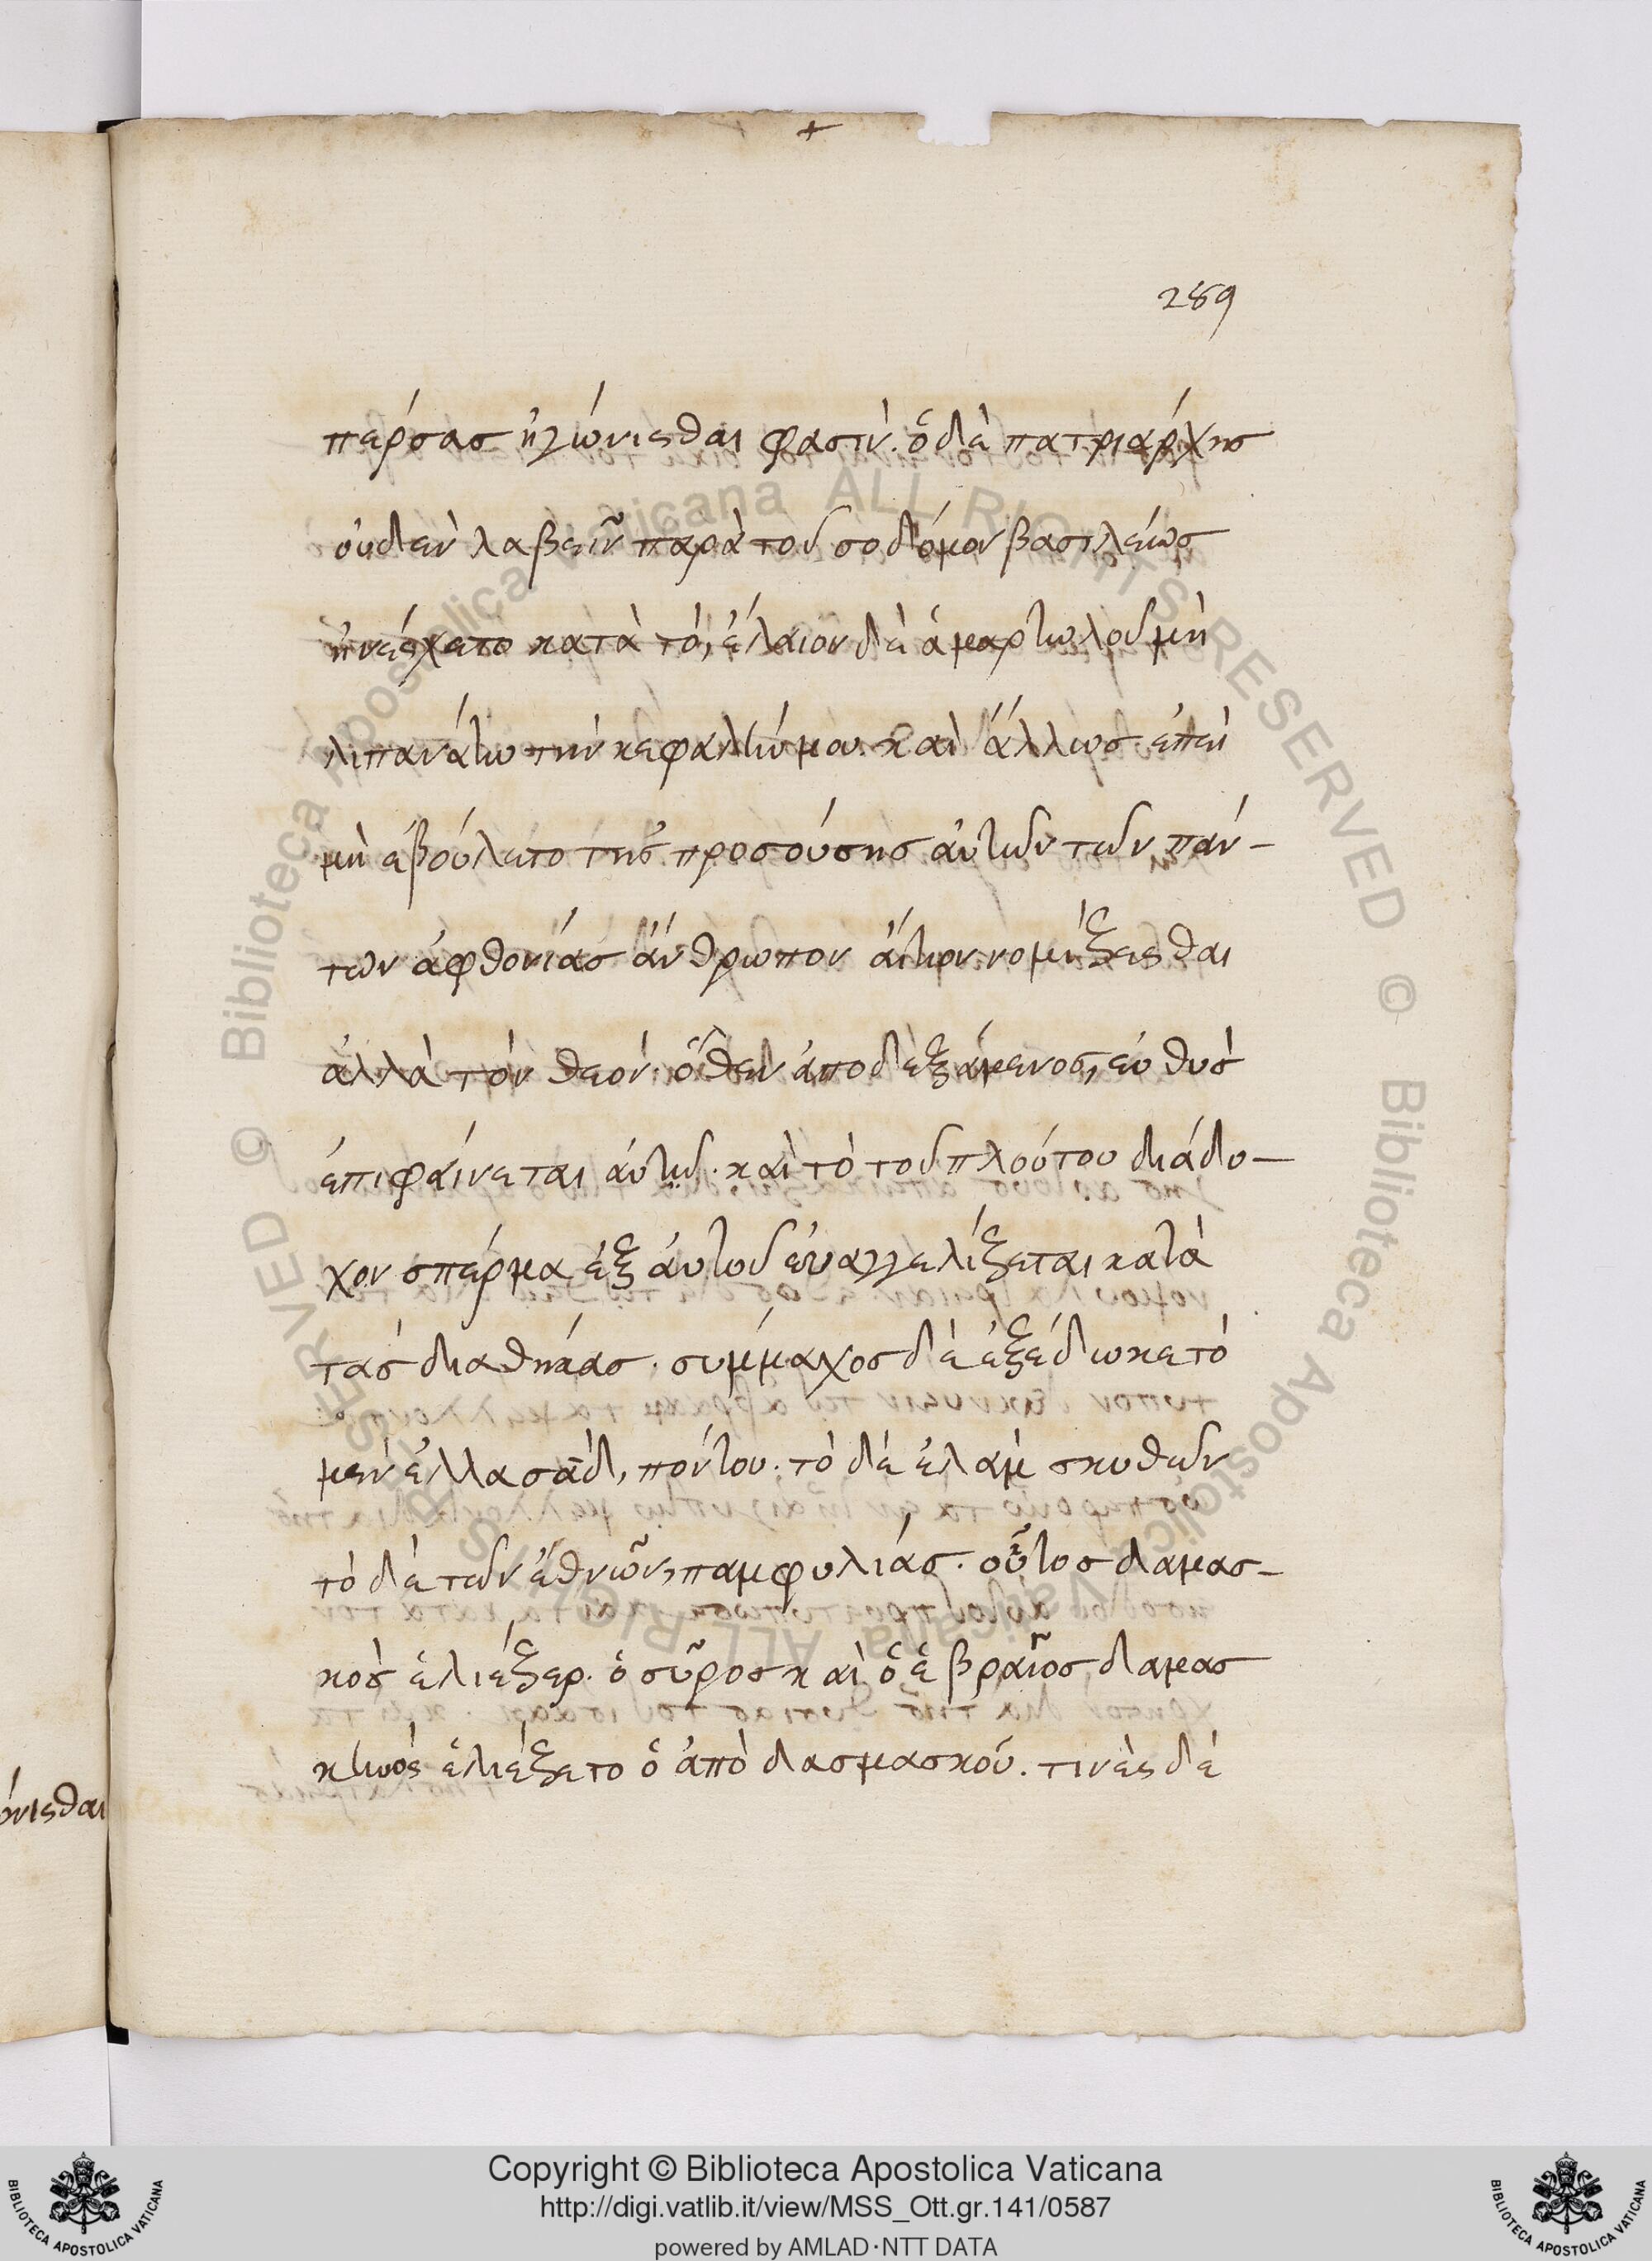 +
289
πέρσας ἠγώνισθαι φασίν. ὁ δὲ πατριάρχης
οὐδὲν λαβεῖν παρὰ τοῦ σοδόμον βασιλέως
ἠνέσχετο κατὰ τὸ, ἔλαιον δὲ ἁμαρτωλοῦ μὴ
λιπανάτω τὴν κεφαλήν μου. καὶ ἄλλως ἐπεὶ
μὴ ἐβούλετο τῆς προσούσης αὐτῶν τῶν πάν-
των ἀφθονίας ἄνθρωπον αἴτιον νομίζεισθαι
ἀλλὰ τὸν θεόν. ὅθεν ἀποδεξάμενος, εὐθὺς
ἐπιφαίνεται αὐτῷ. καὶ τὸ τοῦ πλούτου διάδο-
χον σπέρμα ἐξ αὐτοῦ εὐαγγελίζεται κατὰ
τὰς διαθήκας. σύμμαχος δὲ ἐξέδωκε τὸ
μὲν ἐλλασὰδ, πόντου. τὸ δὲ ἐλὰμ σκυθῶν
τὸ δὲ τῶν ἐθνῶν, παμφυλίας. οὗτος δαμασ-
κὸς ἐλιέζερ. ὁ σῦρος καὶ ὁ ἑβραῖος δαμασ
κινὸς ἐλιέζετο ὁ ἀπὸ δασμασκοῦ. τινὲς δὲ
όνισθαι
Copyright © Biblioteca Apostolica Vaticana
http://digi.vatlib.it/view/MSS_Ott.gr.141/0587
powered by AMLAD·NTT DATA
BIBLIOTECA APOSTOLICA VATICANA
BIBLIOTECA APOSTOLICA VATICANA
© Biblioteca Apostolica Vaticana ALL RIGHTS RESERVED © Biblioteca Apostolica Vaticana ALL RIGHTS RESERVED